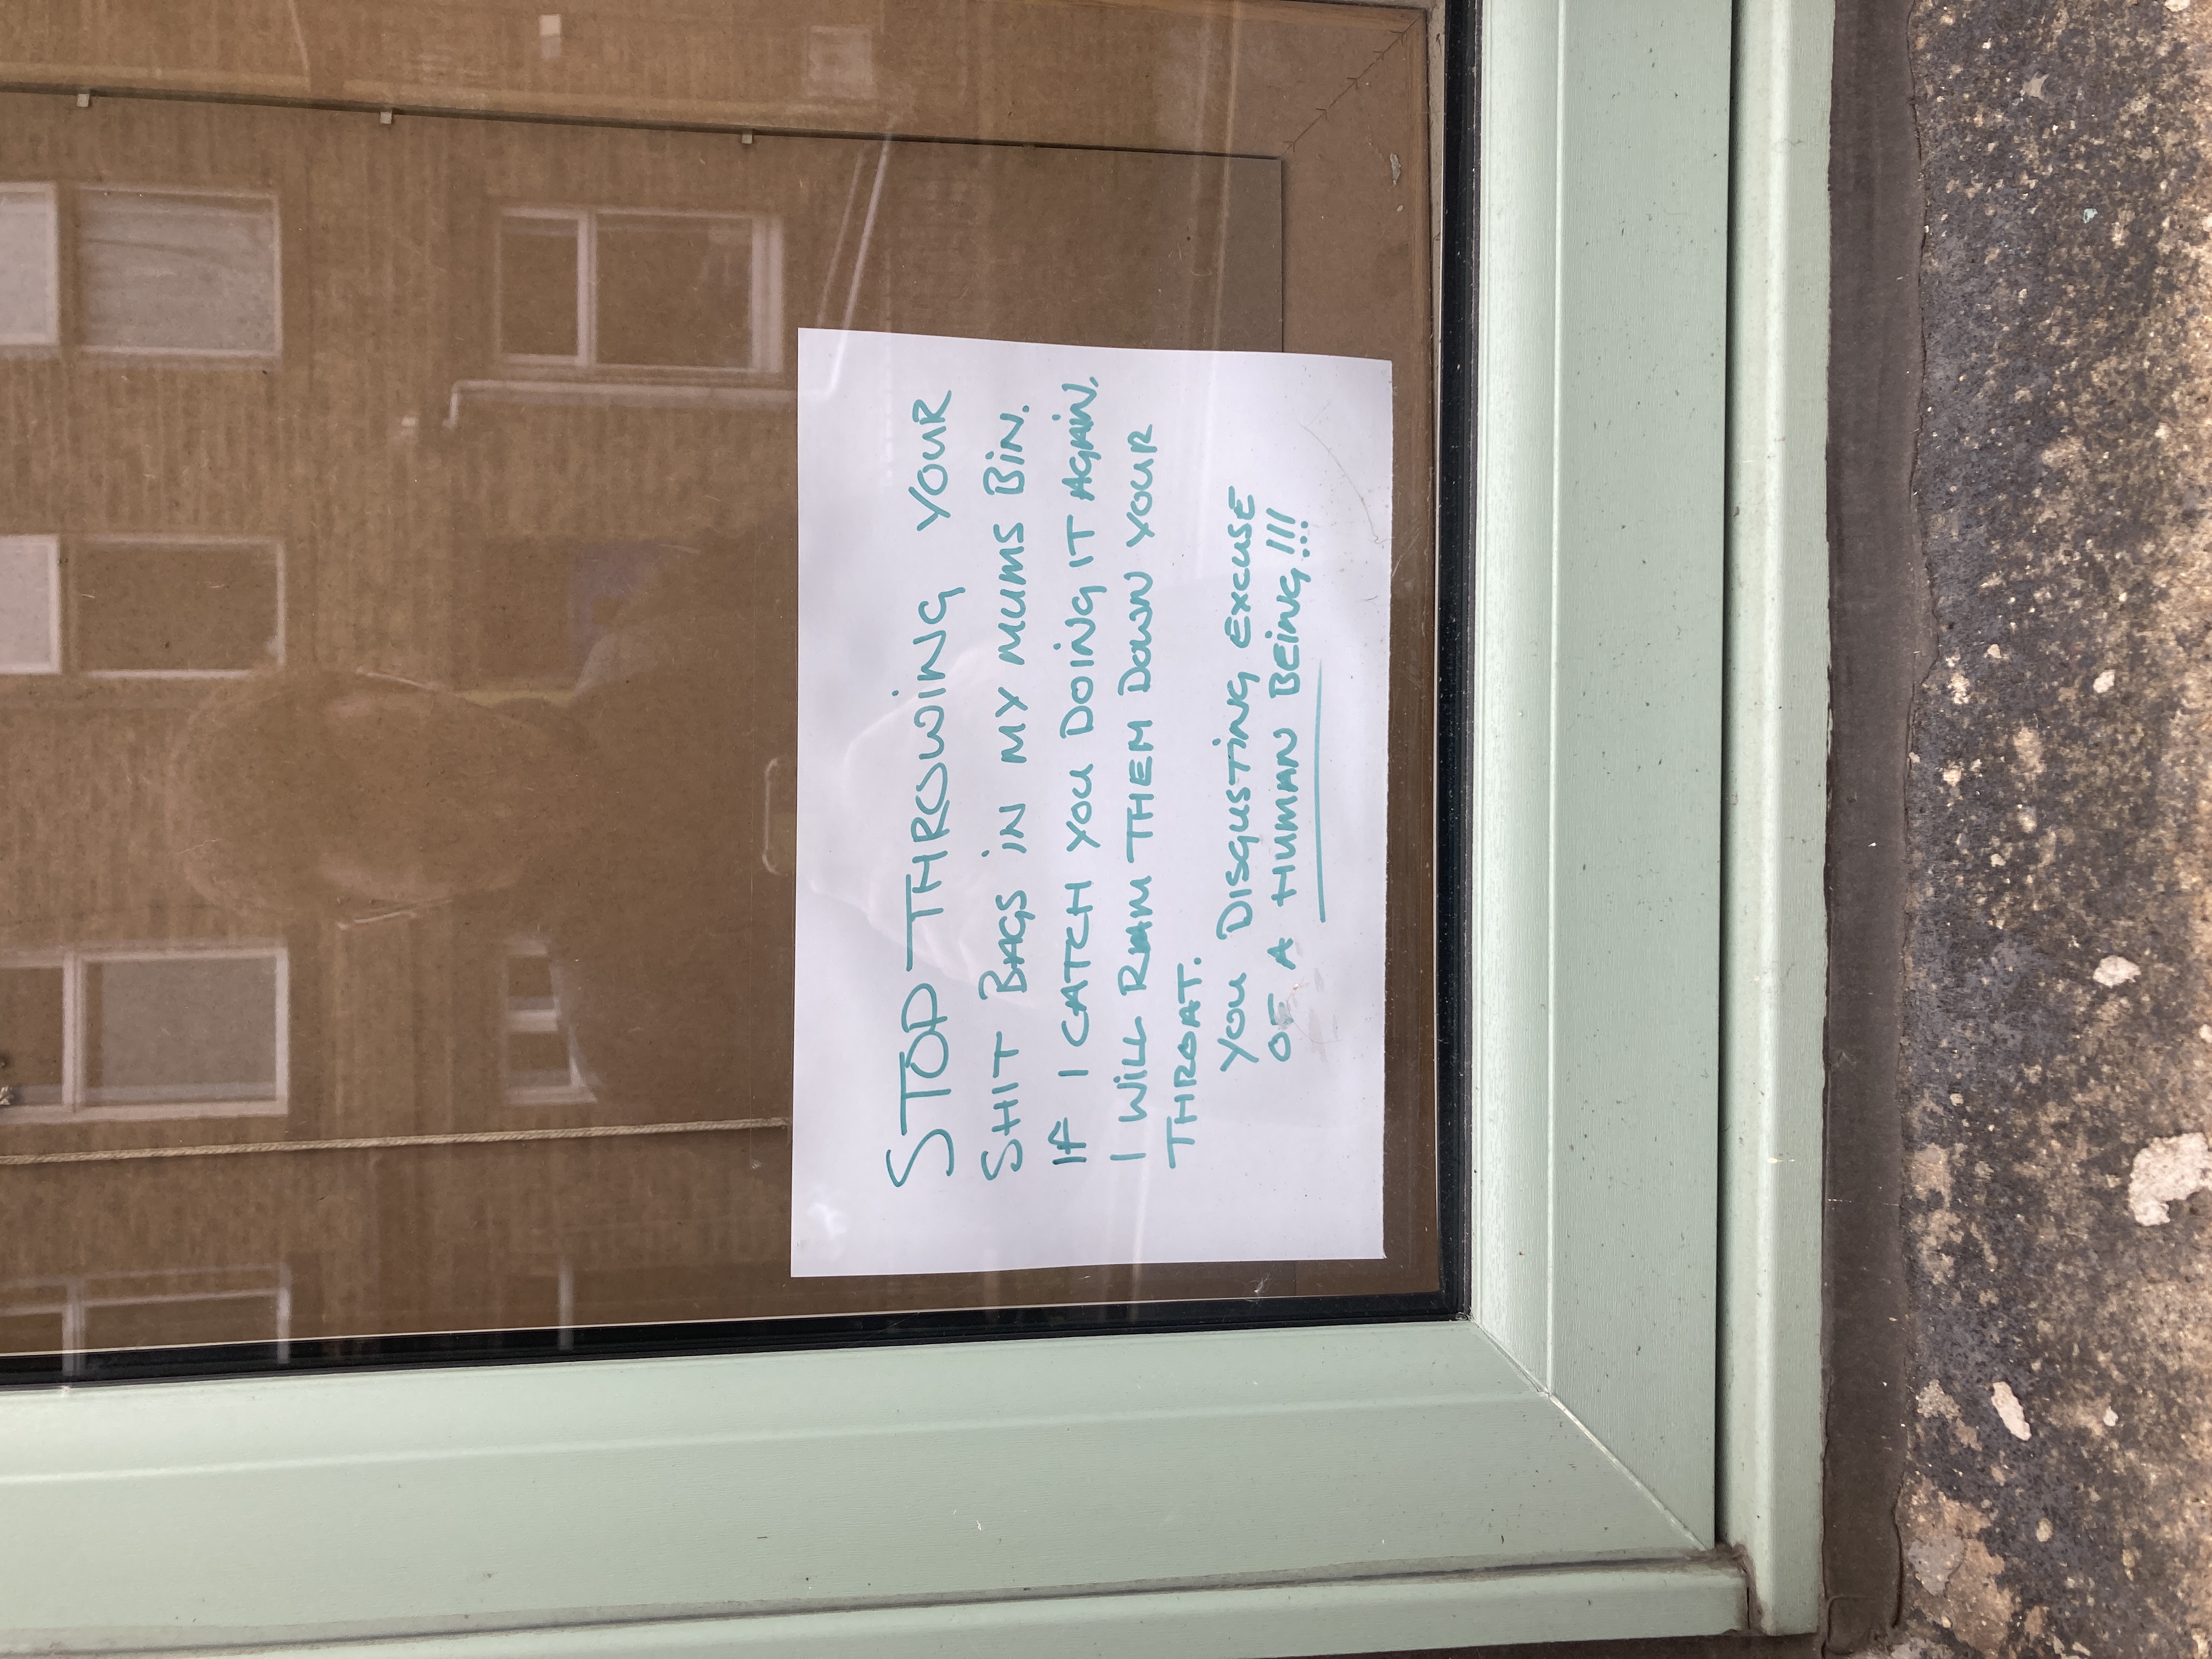 STOP THROWING YOUR
SHIT BAGS IN MY MUMS BIN.
IF I CATCH YOU DOING IT AGAIN.
I WILL RAM THEM DOWN YOUR
THROAT.
YOU DISGUSTING EXCUSE
OF A HUMAN BEING!!!